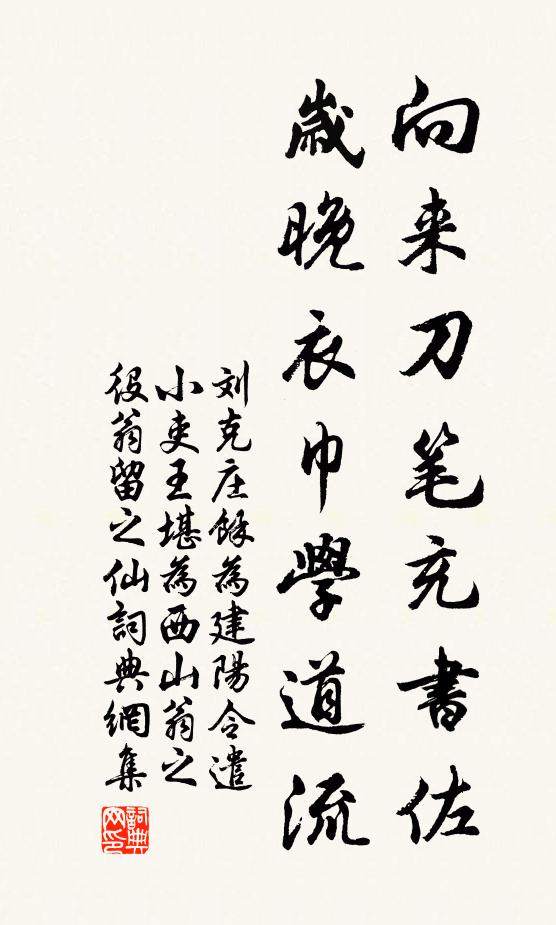 向来刀笔充書佐
歲晚衣巾學道流
刘克庄餘為建陽令遣
小吏王堪為西山翁之
役翁留之仙詞典網集
詞典网印